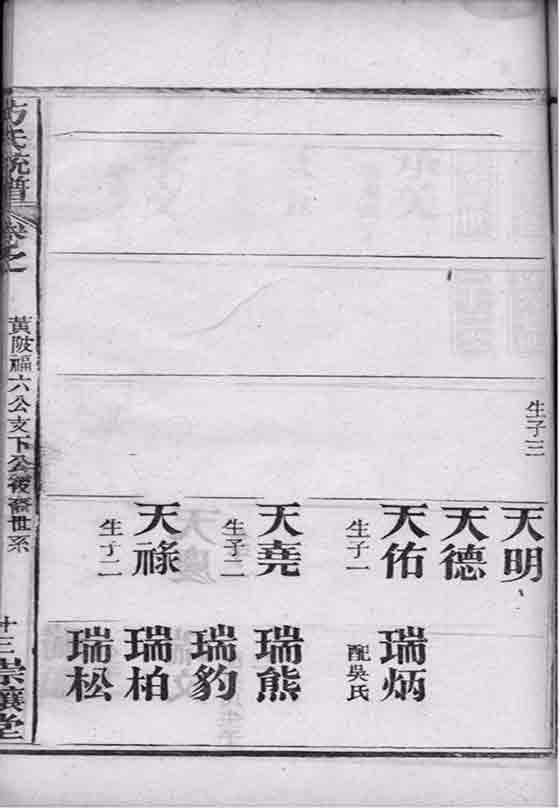 生子三
天明
天德
天佑 瑞炳
生子一 配吳氏
天堯 瑞熊
生子二 瑞豹
天祿 瑞柏
生子二 瑞松
方氏統譜
黃陂福六公支下公後裔世系
十三
崇讓堂